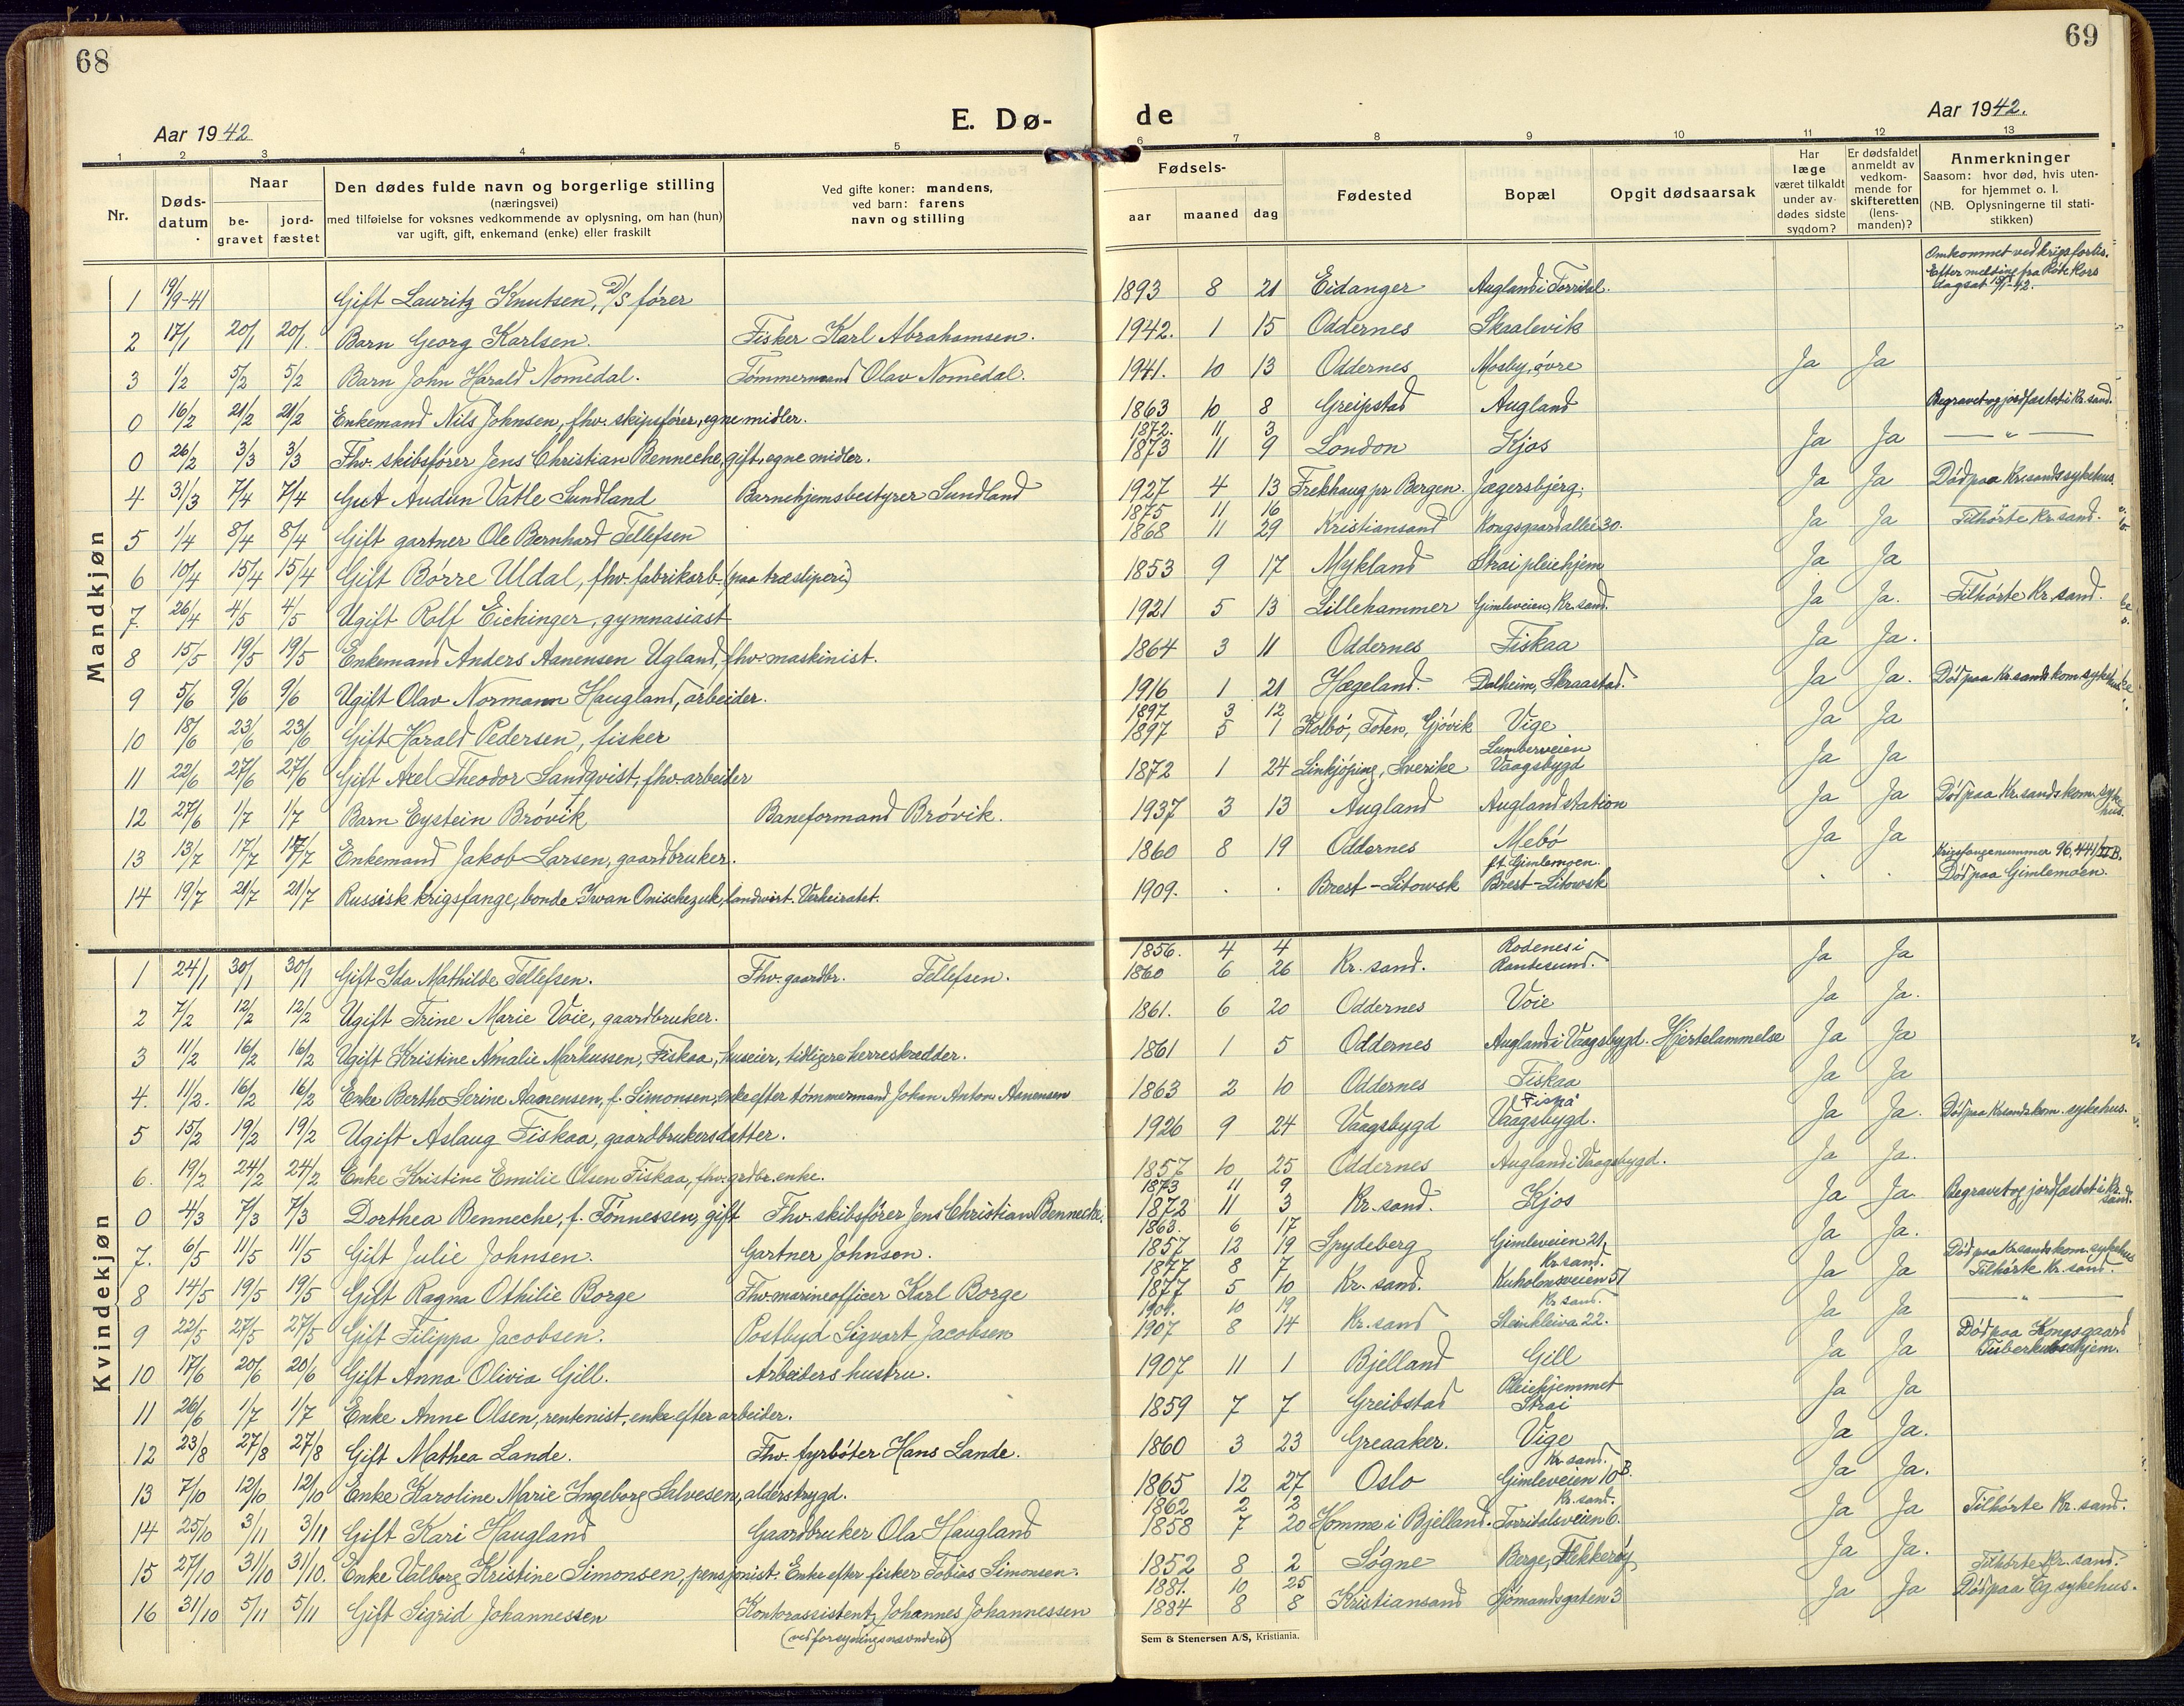 68
69
Aar 1942
E. Dø-
de
Aar 1942.
1 2 3 4 5 6 7 8 9 10 11 12 13
Nr.
Døds-datum
Naar
be-gravet
jord-fæstet
Den dødes fulde navn og borgerlige stilling
(næringsvei)
med tilføielse for voksnes vedkommende av oplysning, om han (hun)
var ugift, gift, enkemand (enke) eller fraskilt
Ved gifte koner: mandens,
ved barn: farens
navn og stilling
Fødsels-
aar maaned dag
Fødested
Bopæl
Opgit dødsaarsak
Har læge været tilkaldt under av-dødes sidste sygdom?
Er dødsfaldet anmeldt av vedkom-mende for skifteretten (lens-manden)?
Anmerkninger
Saasom: hvor død, hvis uten-
for hjemmet o. l.
(NB. Oplysningerne til stati-
stikken)
Mandkjøn
1 19/9-41 Gift Lauritz Knutsen, D/S fører 1893 8 21 Eidanger Augland i Torridal. Omkommet ved krigsforlis. Efter melding fra Røde Kors dagsat 19/1-42.
2 17/1 20/1 20/1 Barn Georg Karlsen. Fisker Karl Abrahamsen. 1942. 1 15 Oddernes Skaalevik
3 1/2 5/2 5/2 Barn John Harald Nomedal. Tømmermand Olav Nomedal. 1941. 10 13 Oddernes Mosby, øvre Ja Ja
0 16/2 21/2 21/2 Enkemand Nils Johnsen, fhv. skipsfører, egne midler. 1863 10 8 Greipstad Augland Begravet og jordfæstet i Kr.sand.
0 26/2 3/3 3/3 Fhv. skibsfører Jens Christian Benneche, gift, egne midler. 1872. 11 3 1873 11 9 London Kjos Ja Ja — " —
4 31/3 7/4 7/4 Gut Audun Vatle Sundland Barnehjemsbestyrer Sundland 1927 4 13 Frekhaug pr Bergen. Jægersbjerg. Ja Ja Død paa Kr.sands sykehus
5 1/4 8/4 8/4 Gift gartner Ole Bernhard Tellefsen 1875 11 16 1868 11 29 Kristiansand Kongsgaardallei 30. Ja Ja Tilhørte Kr.sand.
6 10/4 15/4 15/4 Gift Børre Uldal, fhv. fabrikarb. (paa træsliperi) 1853 9 17 Mykland Strai pleiehjem Ja Ja
7. 26/4 4/5 4/5 Ugift Rolf Eichinger, gymnasiast 1921 5 13 Lillehammer Gimleveien, Kr.sand. Ja Ja. Tilhørte Kr.sand.
8 15/5 19/5 19/5 Enkemand Anders Aanensen Ugland, fhv. maskinist. 1864 3 11 Oddernes Fiskaa Ja Ja.
9 5/6 9/6 9/6 Ugift Olav Normann Haugland, arbeider. 1916 1 21 Hægeland. Dalheim, Skraastad. Ja Ja. Død paa Kr.sands kom. sykehus
10 18/6 23/6 23/6 Gift Harald Pedersen, fisker 1897 3 12 1897 5 1 Kolbø, Toten, Gjøvik Vige Ja Ja
11 22/6 27/6 27/6 Gift Axel Theodor Sandqvist, fhv. arbeider 1872 1 24 Linkjøping, Sverike Lumberveien Vaagsbygd Ja Ja
12 27/6 1/7 1/7 Barn Eystein Brøvik Baneformand Brøvik. 1937 3 13 Augland Augland station Ja Ja Død paa Kr.sands kom. sykehus.
13 13/7 17/7 17/7 Enkemand Jakob Larsen, gaardbruker. 1860 8 19 Oddernes Mebø Ja Ja
14 19/7 21/7 21/7 Russisk krigsfange, bonde Iwan Onischezuk, landwirt. Verheiratet. 1909. . . Brest-Litowsk f.t. Gimlemoen. Brest-Litowsk . . Krigsfangenummer 96,441/IIB. Død paa Gimlemoen.
Kvindekjøn
1 24/1 30/1 30/1 Gift Ida Mathilde Tellefsen. Fhv. gaardbr. Tellefsen. 1856. 4 4 1860 6 26 Kr.sand. Rodenes i Randesund. Ja Ja
2 7/2 12/2 12/2 Ugift Trine Marie Voie, gaardbruker. 1861. 6 20 Oddernes Voie Ja Ja.
3 11/2 16/2 16/2 Ugift Kristine Amalie Markussen, Fiskaa, huseier, tidligere herreskrædder. 1861 1 5 Oddernes Augland i Vaagsbygd. Hjertelammelse Ja Ja
4. 11/2. 16/2 16/2 Enke Berthe Serine Aanensen, f. Simonsen, enke efter tømmermand Johan Anton Aanensen 1863 2 10 Oddernes Fiskaa Ja Ja
5 15/2 19/2 19/2 Ugift Aslaug Fiskaa, gaardbrukersdatter. 1926 9 24 Vaagsbygd Fiskå Vaagsbygd. Ja Ja. Død paa Kr.sands kom. sykehus.
6. 19/2 24/2 24/2 Enke Kristine Emilie Olsen Fiskaa, fhv. grdbr. enke. 1857 10 25 Oddernes Augland i Vaagsbygd. Ja Ja.
0 4/3 7/3 7/3 Dorthea Benneche, f. Tønnessen, gift Fhv. skibsfører Jens Christian Benneche. 1873 11 9 1872 11 3 Kr.sand. Kjos Ja Ja Begravet og jordfæstet i Kr.sand.
7. 6/5 11/5 11/5 Gift Julie Johnsen. Gartner Johnsen. 1863. 6 17 1857 12 19 Spydeberg Gimleveien 21, Kr.sand. Ja Ja.
8 14/5 19/5 19/5 Gift Ragna Othilie Borge Fhv. marineofficer Karl Borge 1877 8 7 1877 5 10 Kr.sand. Kuholmsveien 51 Kr.sand. Ja Ja Død paa Kr.sands kom. sykehus Tilhørte Kr.sand.
9 22/5 27/5 27/5 Gift Filippa Jacobsen. Postbud Sigvart Jacobsen 1901. 10 19 1907 8 14 Kr.sand Steinkleiva 22. Ja Ja — " —
10 17/6 20/6 20/6 Gift Anna Olivia Gill. Arbeiders hustru. 1907 11 1 Bjelland Gill Ja Ja Død paa Kongsgaard Tuberkulosehjem.
11 26/6 1/7 1/7 Enke Anne Olsen, rentenist, enke efter arbeider. 1859 7 7 Greibstad Pleiehjemmet Strai Ja Ja
12 23/8 27/8 27/8 Gift Mathea Lande. Fhv. fyrbøter Hans Lande. 1860 3 23 Greaaker. Vige Ja Ja.
13 7/10 12/10 12/10 Enke Karoline Marie Ingeborg Salvesen, alderstrygd. 1865 12 27 Oslo Kr.sand. Gimleveien 10 B. Ja Ja.
14 25/10 3/11 3/11 Gift Kari Haugland Gaardbruker Ola Haugland 1862 2 2 1858 7 20 Homme i Bjelland. Kr.sand. Torridalsveien 6. Ja Ja Tilhørte Kr.sand.
15 27/10 31/10 31/10. Enke Valborg Kristine Simonsen, pensjonist. Enke efter fisker Tobias Simonsen. 1852 8 2 Søgne Berge, Flekkerøy Ja Ja.
16 31/10 5/11 5/11 Gift Sigrid Johannessen Kontorassistent Johannes Johannessen (ved forsyningsnævnden) 1881. 10 25 1884 8 8 Kristiansand Sjømandsgaten 3 Ja Ja Tilhørte Kr.sand. Død paa Eg sykehus.
Sem & Stenersen A/S, Kristiania.